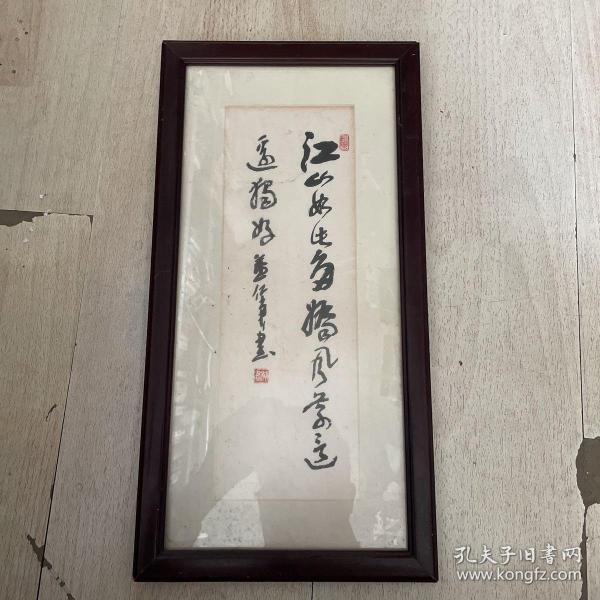 江山如此多娇风景这
边独好
书
孔夫子旧书网
www.kongfz.com